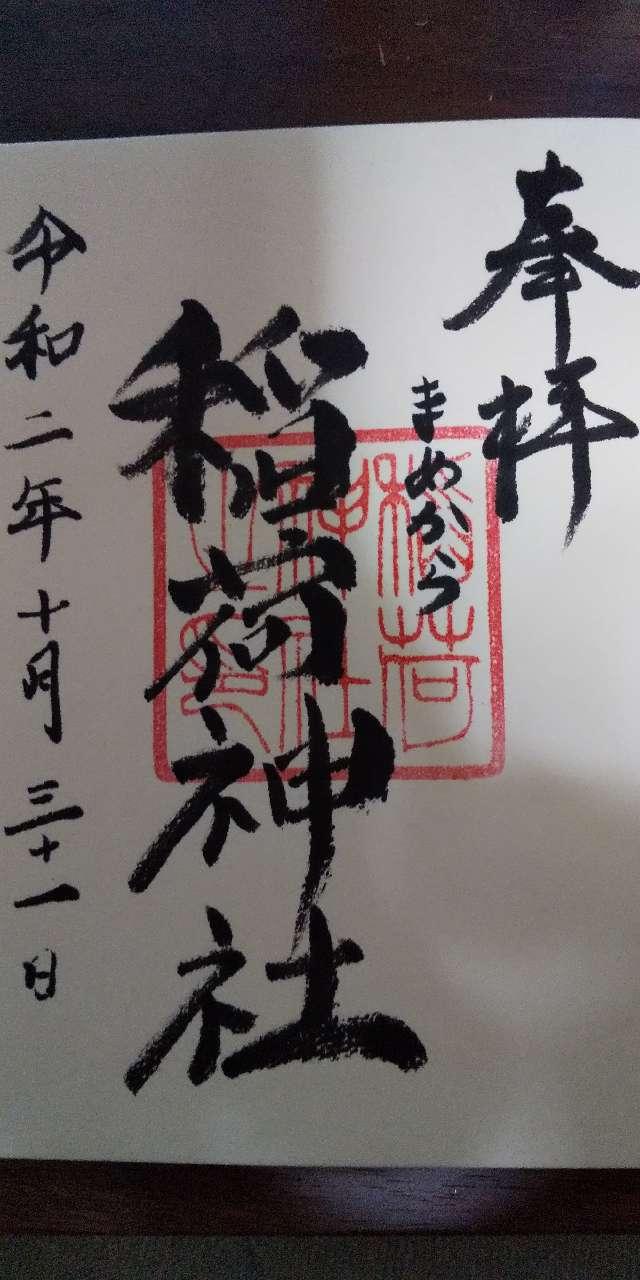 奉拝
まめから
稲荷神社
稲荷
神社
之印
令和二年十月三十一日